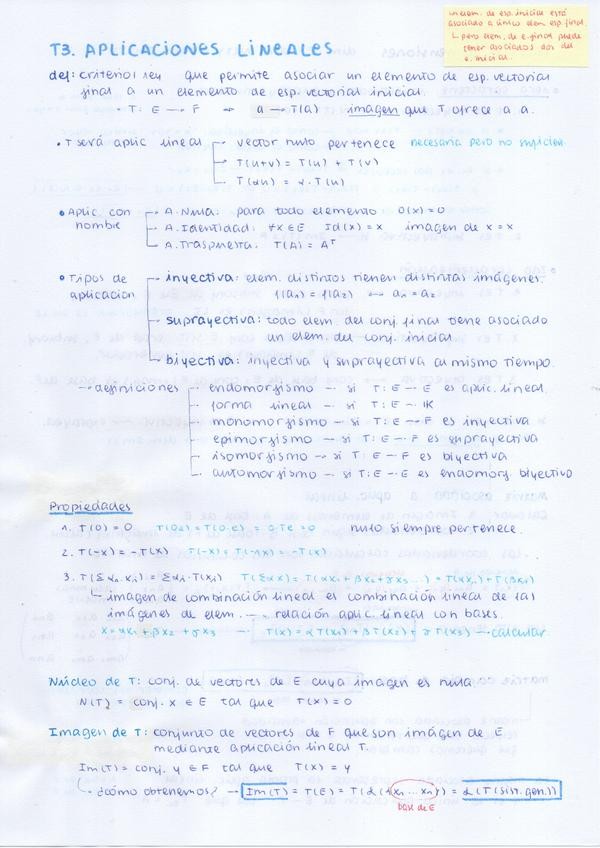 un elem. de esp. inicial está
asociado a único elem esp. final.
↳ pero elem. de e. final puede
tener asociados dos del
e. inicial.
T3. APLICACIONES LINEALES
def: criterio/ley que permite asociar un elemento de esp. vectorial
final a un elemento de esp. vectorial inicial.
· T: E → F a → T(a) imagen que T ofrece a a.
• T será aplic lineal
vector nulo pertenece necesaria pero no suficien.
T(u+v) = T(u) + T(v)
T(αu) = α·T(u)
• Aplic. con nombre
A. Nula: para todo elemento O(x) = 0
A. Identidad: ∀x ∈ E Id(x) = x imagen de x = x
A. Traspuesta: T(A) = Aᵀ
• Tipos de aplicación
inyectiva: elem. distintos tienen distintas imágenes.
f(a₁) = f(a₂) ↔ a₁ = a₂
suprayectiva: todo elem. del conj. final tiene asociado
un elem. del conj. inicial.
biyectiva: inyectiva y suprayectiva al mismo tiempo.
→ definiciones
endomorfismo → si T: E → E es aplic. lineal.
forma lineal → si T: E → IK
monomorfismo → si T: E → F es inyectiva
epimorfismo → si T: E → F es suprayectiva
isomorfismo → si T: E → F es biyectiva
automorfismo → si T: E → E es endomorf. biyectivo
Propiedades
1. T(0) = 0 T(0e) = T(0·e) = 0·Te = 0 nulo siempre pertenece.
2. T(-x) = -T(x) T(-x) = T(-1x) = -T(x)
3. T(Σαₙ·xᵢ) = Σαₙ·T(xᵢ) T(Σαx) = T(αx₁ + βx₂ + γx₃ ...) = T(αx₁) + T(βx₂)
↳ imagen de combinación lineal es combinación lineal de las
imágenes de elem. → relación aplic. lineal con bases.
x = αx₁ + βx₂ + γx₃ → T(x) = αT(x₁) + βT(x₂) + γT(x₃) → calcular
Núcleo de T: conj. de vectores de E cuya imagen es nula.
N(T) = conj. x ∈ E tal que T(x) = 0
Imagen de T: conjunto de vectores de F que son imagen de E
mediante aplicación lineal T.
Im(T) = conj. y ∈ F tal que T(x) = y
↳ ¿cómo obtenemos? → Im(T) = T(E) = T(L({x₁ ... xₙ})) = L(T(sist. gen.))
base de E